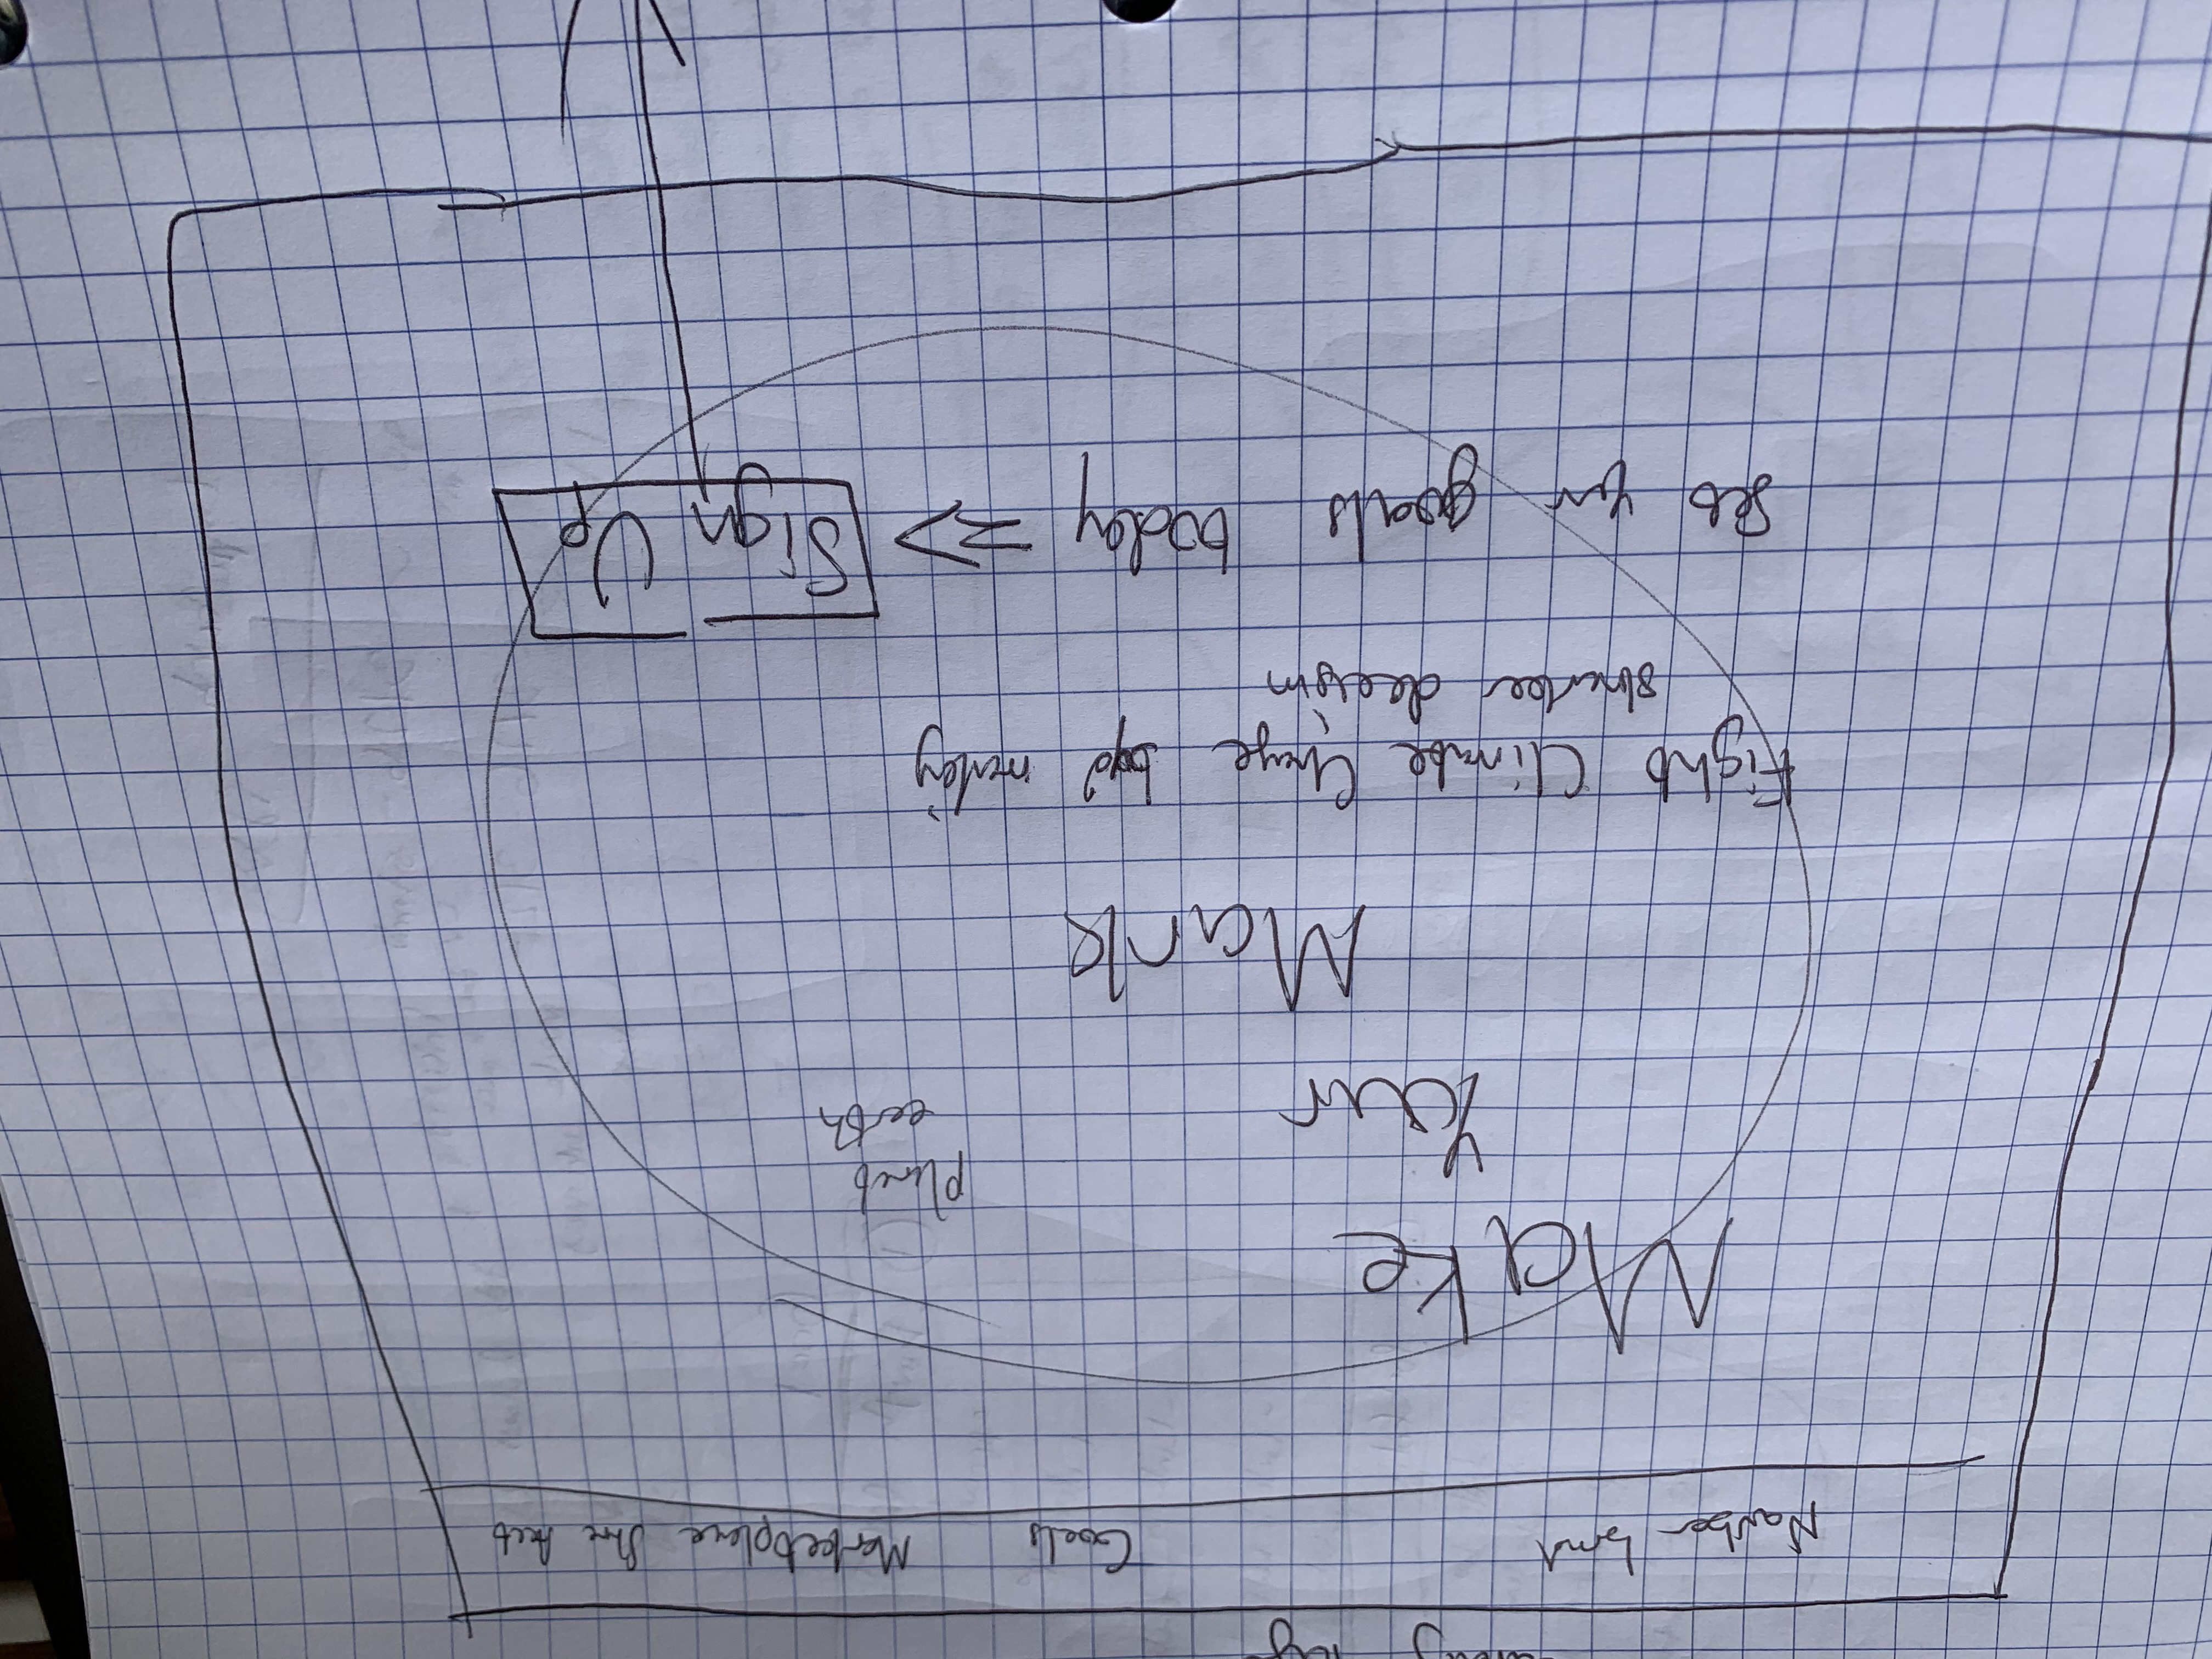 Navbar brand Goals Marketplace Share Acct
Make
Your
Mark
planet
earth
Fight Climate Change by making
smarter decision
Set your goals today => Sign Up